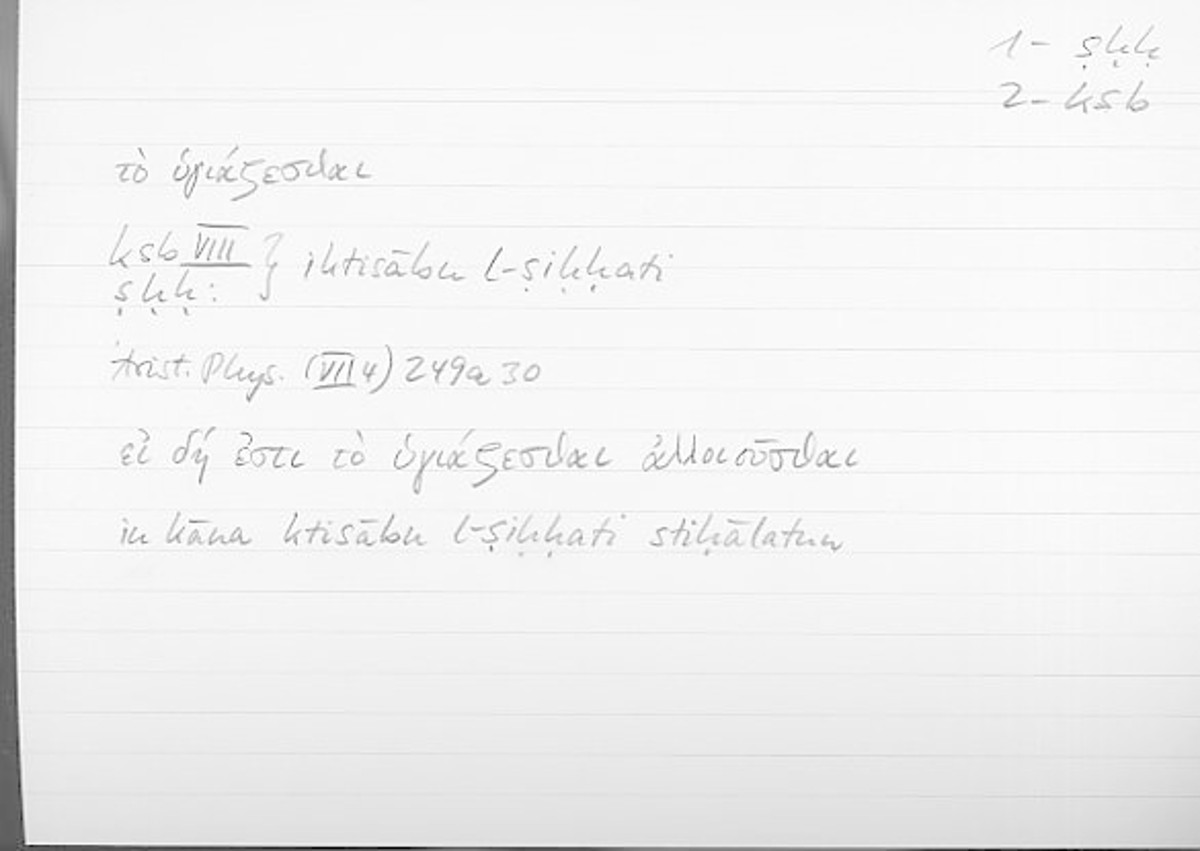 1 - ṣḥḥ
2 - ksb
τὸ ὑγιάζεσθαι
ksb VIII } iktisābu l-ṣiḥḥati
ṣḥḥ:
Arist. Phys. (VII 4) 249a 30
εἰ δή ἐστι τὸ ὑγιάζεσθαι ἀλλοιοῦσθαι
in kāna ktisābu l-ṣiḥḥati stiḥālatun